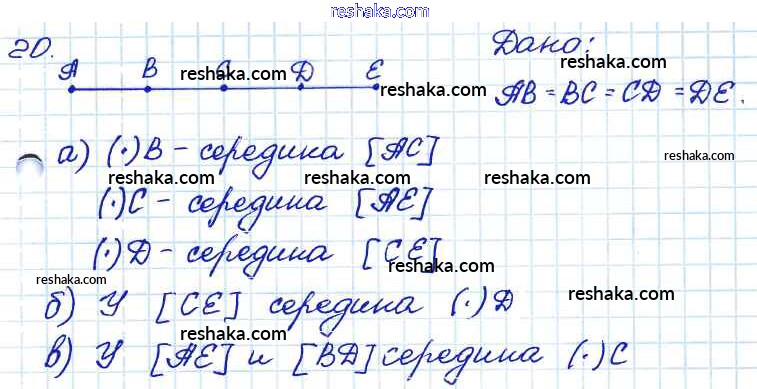 reshaka.com
20.
Дано:
A B C D E
reshaka.com
reshaka.com
AB = BC = CD = DE.
reshaka.com
а) (·) B – середина [AC]
reshaka.com
reshaka.com reshaka.com reshaka.com
(·) C – середина [AE]
(·) D – середина [CE]
reshaka.com
reshaka.com
reshaka.com
б) У [CE] середина (·) D
reshaka.com
в) У [AE] и [BD] середина (·) C
reshaka.com